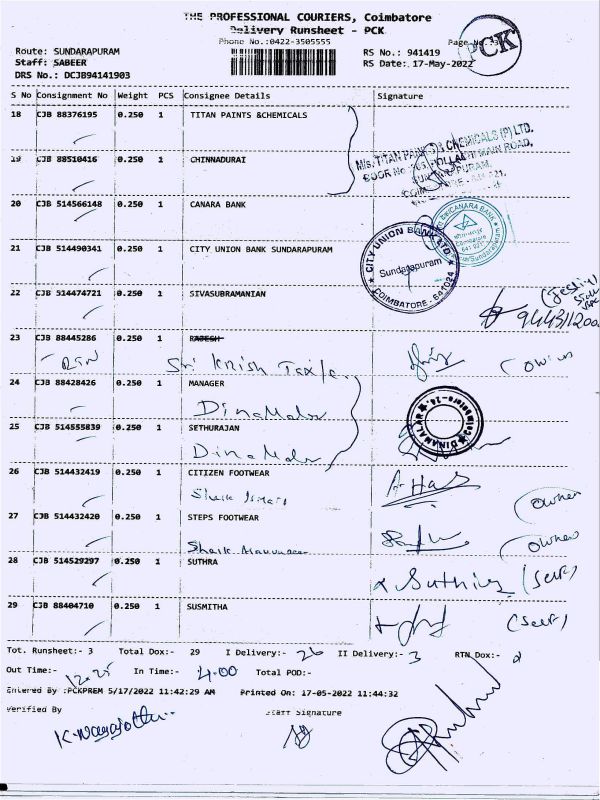 THE PROFESSIONAL COURIERS, Coimbatore
Delivery Runsheet - PCK
Phone No.:0422-3505555
Page No.
PCK
Route: SUNDARAPURAM
RS No.: 941419
Staff: SABEER
RS Date: 17-May-2022
DRS No.: DCJB94141903
S No Consignment No Weight PCS Consignee Details Signature
18 CJB 88376195 0.250 1 TITAN PAINTS &CHEMICALS
19 CJB 88510416 0.250 1 CHINNADURAI
20 CJB 514566148 0.250 1 CANARA BANK
21 CJB 514490341 0.250 1 CITY UNION BANK SUNDARAPURAM
CITY UNION BANK LTD.
Sundarapuram
COIMBATORE - 641024
22 CJB 514474721 0.250 1 SIVASUBRAMANIAN
23 CJB 88445286 0.250 1
Sri Krish
24 CJB 88428426 0.250 1 MANAGER
Dinamalar
DINAMALAR
25 CJB 514555839 0.250 1 SETHURAJAN
Dinamalar
26 CJB 514432419 0.250 1 CITIZEN FOOTWEAR
Shaik
owner
27 CJB 514432420 0.250 1 STEPS FOOTWEAR
Shaik
owner
28 CJB 514529297 0.250 1 SUTHRA
(Self)
29 CJB 88404710 0.250 1 SUSMITHA
(Self)
Tot. Runsheet:- 3 Total Dox:- 29 I Delivery:- 26 II Delivery:- 3 RTN Dox:-
Out Time:- 12.25 In Time:- 4.00 Total POD:-
Entered By :PCKPREM 5/17/2022 11:42:29 AM Printed On: 17-05-2022 11:44:32
Verified By Staff Signature